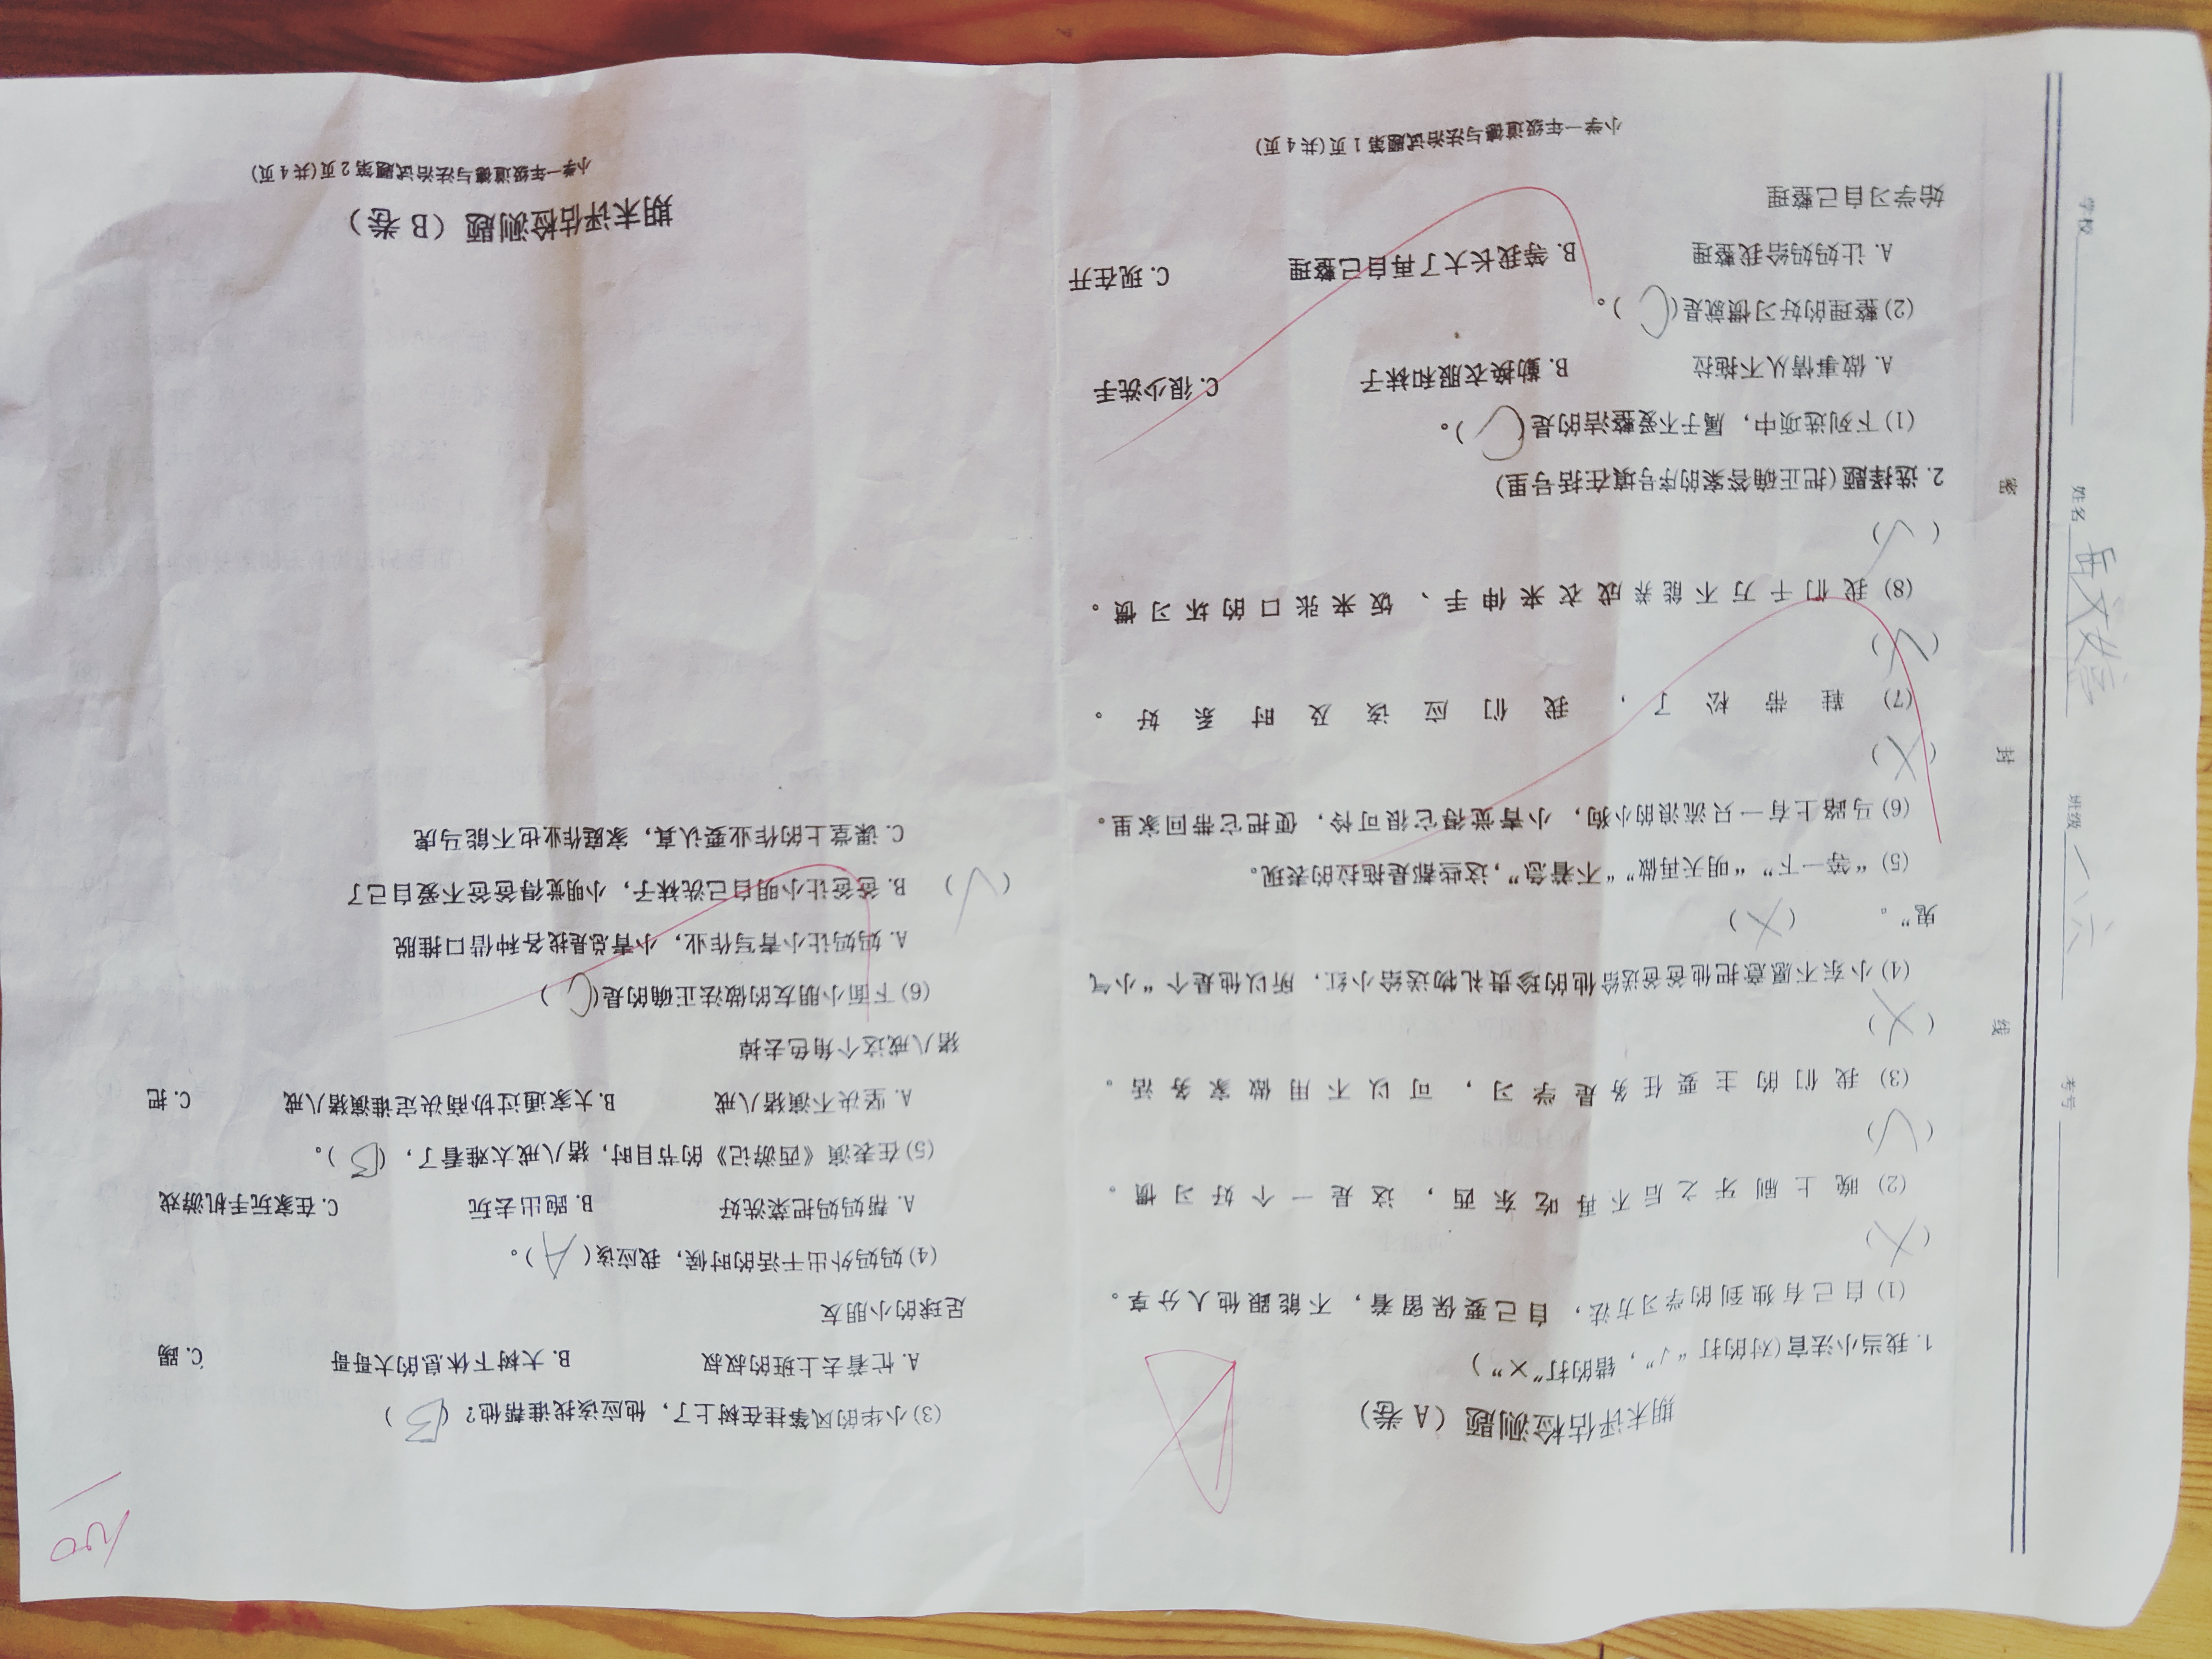 学校
姓名 岳文婷
班级 一、六
考号
密
封
线
期末评估检测题（A 卷）
1. 我当小法官(对的打“√”，错的打“×”)
(1) 自己有独到的学习方法，自己要保留着，不能跟他人分享。
(×)
(2) 晚上刷牙之后不再吃东西，这是一个好习惯。
(√)
(3) 我们的主要任务是学习，可以不用做家务活。
(×)
(4) 小东不愿意把他爸爸送给他的珍贵礼物送给小红，所以他是个“小气
鬼”。 (×)
(5) “等一下”“明天再做”“不着急”，这些都是拖拉的表现。
(6) 马路上有一只流浪的小狗，小青觉得它很可怜，便把它带回家里。
(×)
(7) 鞋带松了，我们应该及时系好。
(8) 我们千万不能养成衣来伸手、饭来张口的坏习惯。
(√)
2. 选择题(把正确答案的序号填在括号里)
(1) 下列选项中，属于不爱整洁的是(C)。
A. 做事情从不拖拉 B. 勤换衣服和袜子 C. 很少洗手
(2) 整理的好习惯就是(C)。
A. 让妈妈给我整理 B. 等我长大了再自己整理 C. 现在开
始学习自己整理
小学一年级道德与法治试题第 1 页(共 4 页)
100
(3) 小华的风筝挂在树上了，他应该找谁帮他？(B)
A. 忙着去上班的叔叔 B. 大树下休息的大哥哥 C. 踢
足球的小朋友
(4) 妈妈外出干活的时候，我应该(A)。
A. 帮妈妈把菜洗好 B. 跑出去玩 C. 在家玩手机游戏
(5) 在表演《西游记》的节目时，猪八戒太难看了，(B)。
A. 坚决不演猪八戒 B. 大家通过协商决定谁演猪八戒 C. 把
猪八戒这个角色去掉
(6) 下面小朋友的做法正确的是(C)
A. 妈妈让小青写作业，小青总是找各种借口推脱
(√) B. 爸爸让小明自己洗袜子，小明觉得爸爸不爱自己了
C. 课堂上的作业要认真，家庭作业也不能马虎
期末评估检测题（B 卷）
小学一年级道德与法治试题第 2 页(共 4 页)